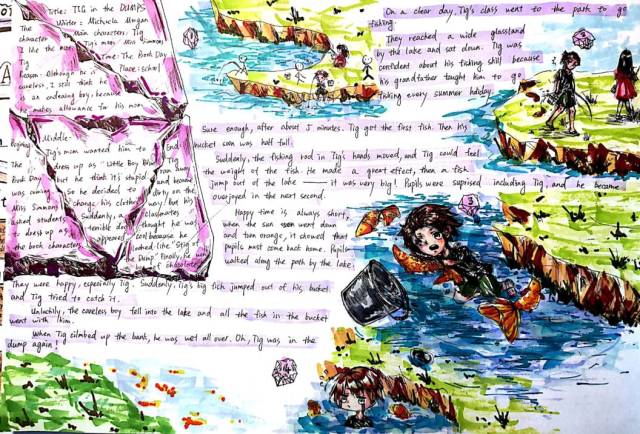 Title: TIG in the DUMPS
Writer: Michaela Morgan
The Main characters: Tig
character Tig's mom Miss Simmons
I like the most: Time: The Book Day
Tig Place: school
Reason: Although he is
careless, I still think he
is an endearing boy, because
he makes allowance for his mom.
Middle:
Tig's mom wanted him to
dress up as "Little Boy Blue"
Book Day but he think it's stupid
was coming. So he decided to
Miss Simmons change his clothes.
asked students Suddenly,
to dress up as terrible
the book characters. appeared
End
Tig
and became
dirty on the
way, but his
classmates
thought he was
cool because he
looked like "Stig of
the Dump". Finally, he
of chocolate
On a clear day, Tig's class went to the path to go
fishing.
They reached a wide glassland
by the lake and sat down. Tig was
confident about his fishing skill because
his grandfather taught him to go
fishing every summer holiday.
Sure enough, after about 5 minutes. Tig got the first fish. Then his
bucket was half full.
Suddenly, the fishing rod in Tig's hands moved, and Tig could feel
the weight of the fish. He made a great effort, then a fish
jump out of the lake — it was very big! Pupils were suprised including Tig, and he became
overjoyed in the next second.
Happy time is always short,
when the sun went down
and turn orange, it showed that
pupils must come back home. Pupils
walked along the path by the lake.
3
They were happy, especially Tig. Suddenly, Tig's big fish jumped out of his bucket
and Tig tried to catch it.
Unluckily, the careless boy fell into the lake and all the fish in the bucket
went with him.
When Tig climbed up the bank, he was wet all over. Oh, Tig was in the
dump again!
4